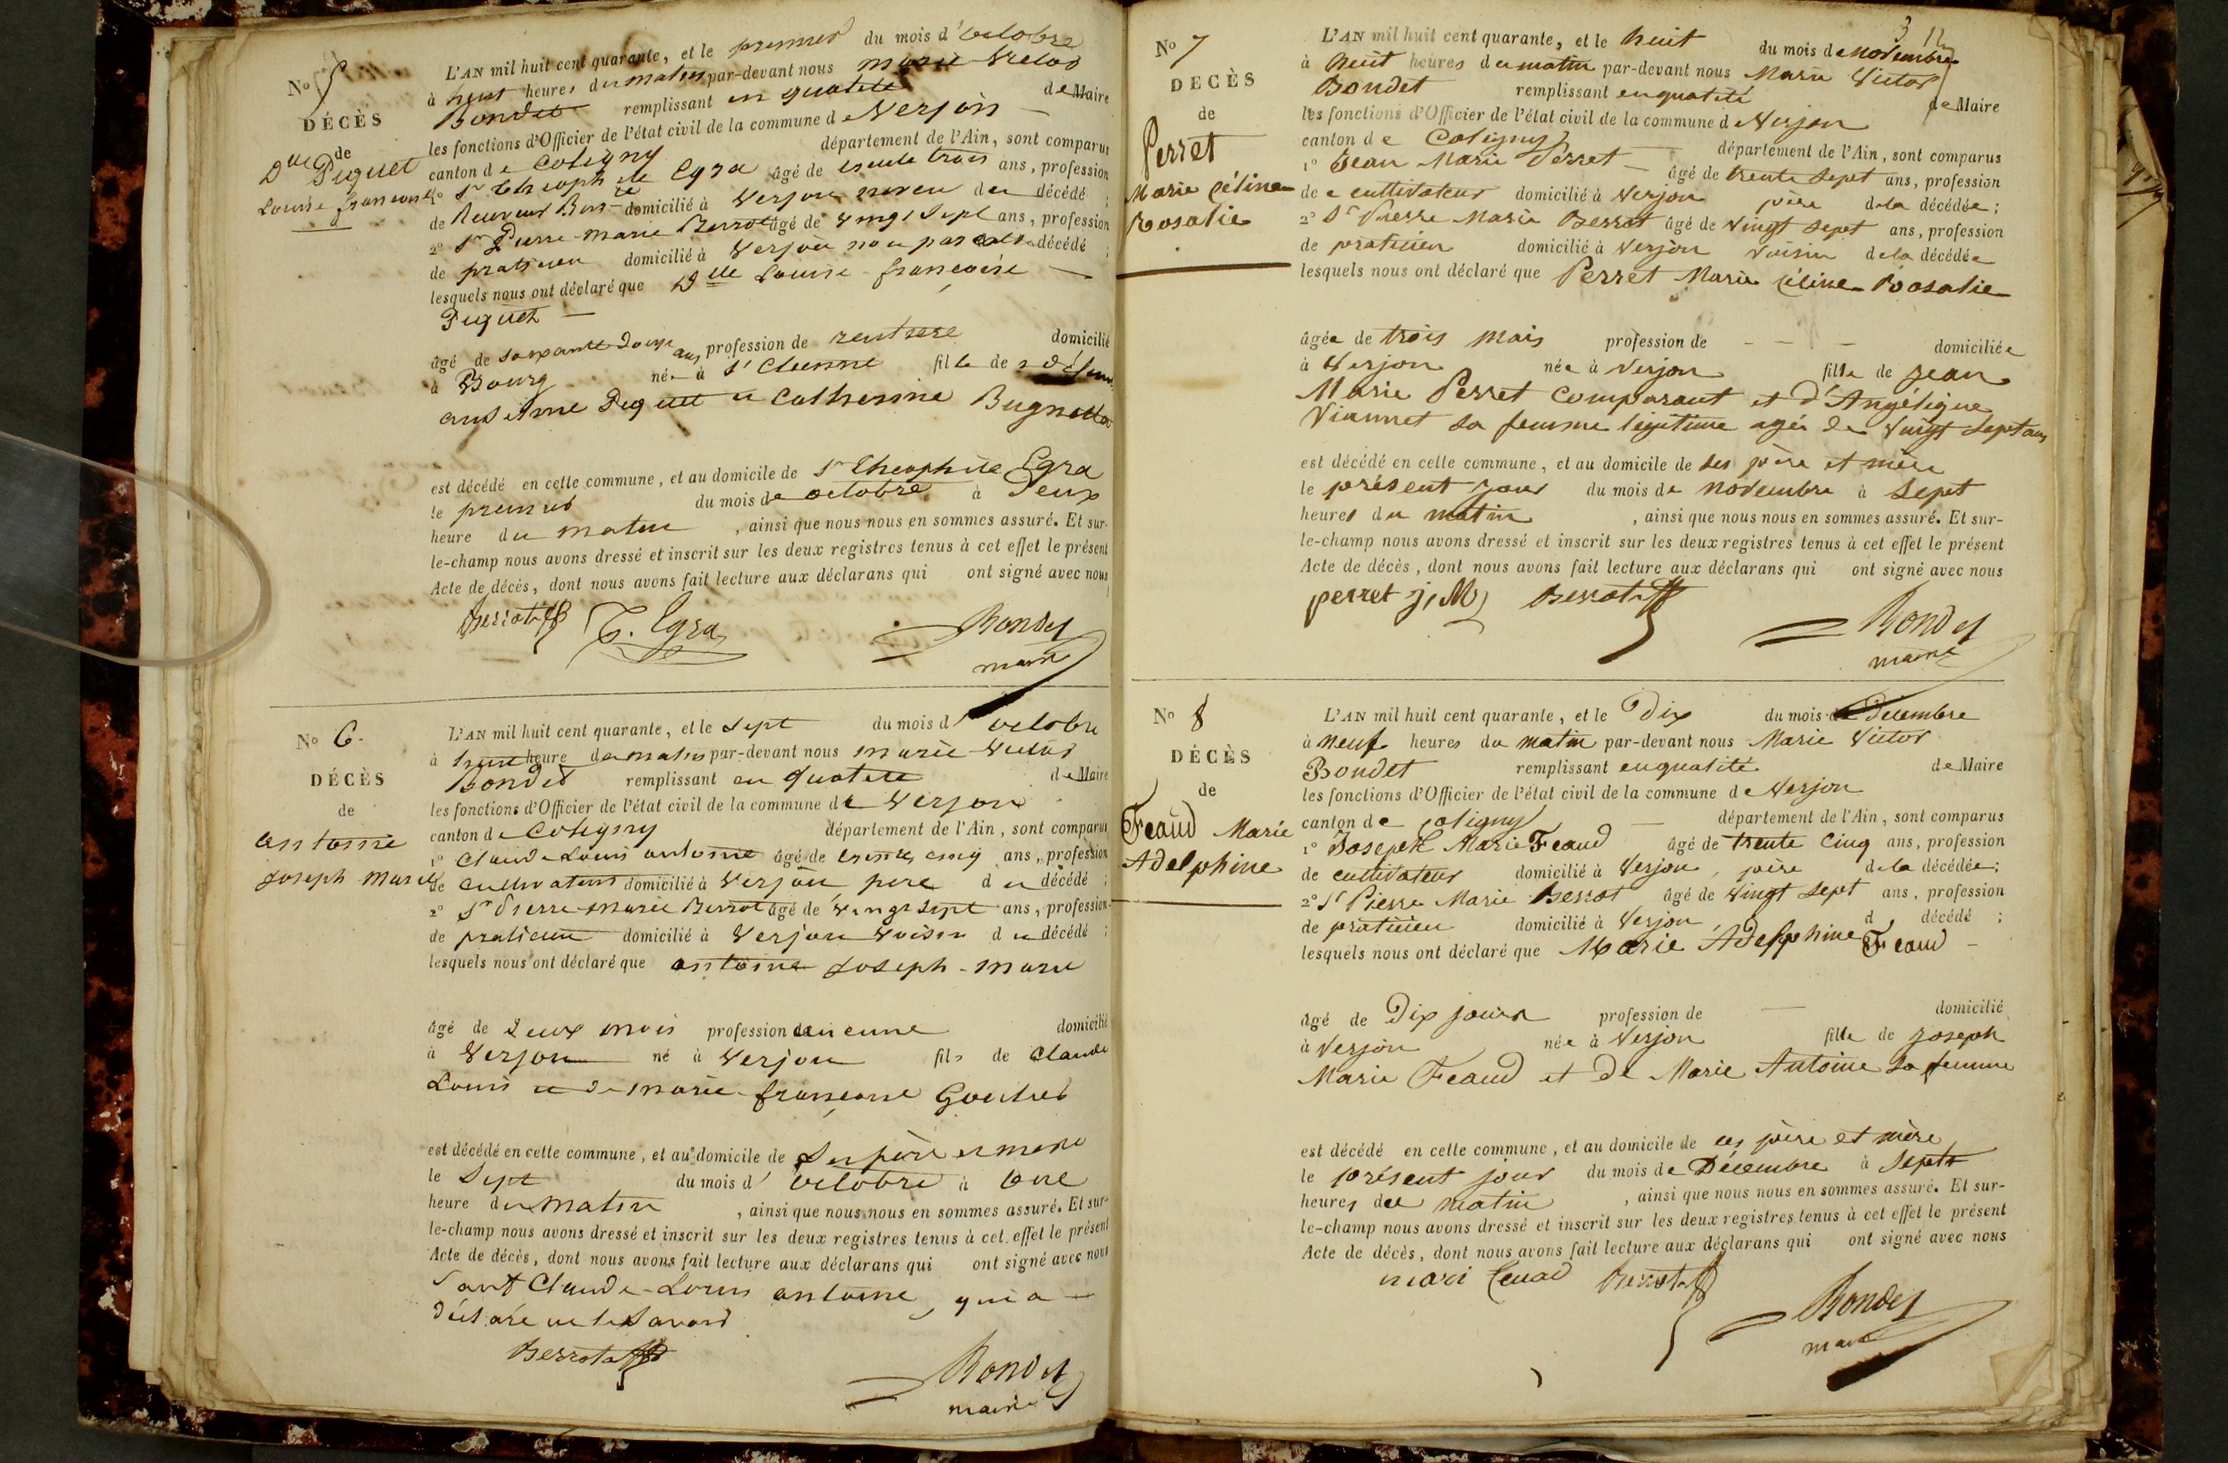 No 5
DÉCÈS
de
Dlle Piquet
Louise françoise
L'AN mil huit cent quarante, et le premier du mois d'octobre
à heures du matin par-devant nous marie Victor
Bondet remplissant en qualité de Maire
les fonctions d'Officier de l'état civil de la commune de Verjon
canton de Coligny département de l'Ain, sont comparus
1° Sr théophile Egra âgé de trente trois ans, profession
de Receveur domicilié à Verjon neveu du décédé ;
2° Sr Pierre-marie Berrot âgé de vingt Sept ans, profession
de praticien domicilié à Verjon non parent décédé ;
lesquels nous ont déclaré que Dlle Louise-françoise
Piquet
âgé de Soixante douze ans profession de rentiere domicilié
à Bourg née à St Etienne fille de
anselme Piquet et Catherine
est décédé en cette commune, et au domicile de Sr theophile Egra
le premier du mois de octobre à Deux
heure du matin , ainsi que nous nous en sommes assuré. Et sur-
le-champ nous avons dressé et inscrit sur les deux registres tenus à cet effet le présent
Acte de décès, dont nous avons fait lecture aux déclarans qui ont signé avec nous
Berrot T. Egra Bondet
maire
No 6.
DÉCÈS
de
antoine
Joseph Marie
L'AN mil huit cent quarante, et le Sept du mois d'octobre
à heure du matin par-devant nous marie-Victor
Bondet remplissant en qualité de Maire
les fonctions d'Officier de l'état civil de la commune de Verjon
canton de Coligny département de l'Ain, sont comparus
1° Claude Louis antoine âgé de trente cinq ans, profession
de Cultivateur domicilié à Verjon pere du décédé ;
2° Sr Pierre-marie Berrot âgé de Vingt Sept ans, profession
de praticien domicilié à Verjon Voisin du décédé ;
lesquels nous ont déclaré que antoine Joseph-marie
âgé de Deux mois profession de aucune domicilié
à Verjon né à Verjon fils de Claude
Louis et de marie-françoise
est décédé en cette commune, et au domicile de Ses père et mere
le Sept du mois d'octobre à une
heure du matin , ainsi que nous nous en sommes assuré. Et sur-
le-champ nous avons dressé et inscrit sur les deux registres tenus à cet effet le présent
Acte de décès, dont nous avons fait lecture aux déclarans qui ont signé avec nous
Sauf Claude-Louis antoine, qui a
déclaré ne le Savoir
Berrot
Bondet
maire
3
No 7
DECÈS
de
Perret
Marie Céline
Rosalie
L'AN mil huit cent quarante, et le huit du mois de Novembre
à heures du matin par-devant nous Marie Victor
Bondet remplissant en qualité de Maire
les fonctions d'Officier de l'état civil de la commune de Verjon
canton de Coligny département de l'Ain, sont comparus
1° Jean Marie Perret âgé de trente Sept ans, profession
de cultivateur domicilié à Verjon père de la décédée ;
2° Sr Pierre Marie Berrot âgé de Vingt Sept ans, profession
de praticien domicilié à Verjon Voisin de la décédée
lesquels nous ont déclaré que Perret Marie Céline Rosalie
âgée de trois mois profession de domiciliée
à Verjon née à Verjon fille de Jean
Marie Perret comparant et d'Angélique
Viannet sa femme légitime agée de Vingt Sept ans
est décédé en cette commune, et au domicile de ses père et mère
le présent jour du mois de novembre à Sept
heures du matin , ainsi que nous nous en sommes assuré. Et sur-
le-champ nous avons dressé et inscrit sur les deux registres tenus à cet effet le présent
Acte de décès, dont nous avons fait lecture aux déclarans qui ont signé avec nous
perret j, M Berrot Bondet
maire
No 8
DÉCÈS
de
Feaud Marie
Adelphine
L'AN mil huit cent quarante, et le Dix du mois de Décembre
à neuf heures du matin par-devant nous Marie Victor
Bondet remplissant en qualité de Maire
les fonctions d'Officier de l'état civil de la commune de Verjon
canton de Coligny département de l'Ain, sont comparus
1° Joseph Marie Feaud âgé de trente Cinq ans, profession
de cultivateur domicilié à Verjon, père de la décédée ;
2° Sr Pierre Marie Berrot âgé de Vingt Sept ans, profession
de praticien domicilié à Verjon, d décédé ;
lesquels nous ont déclaré que Marie Adelphine Feaud
âgé de Dix jours profession de domicilié
à Verjon née à Verjon fille de Joseph
Marie Feaud et de Marie Antoine Sa femme
est décédé en cette commune, et au domicile de ces père et mère
le présent jour du mois de Décembre à Sept
heures du matin , ainsi que nous nous en sommes assuré. Et sur-
le-champ nous avons dressé et inscrit sur les deux registres tenus à cet effet le présent
Acte de décès, dont nous avons fait lecture aux déclarans qui ont signé avec nous
mari feuad Berrot
Bondet
maire